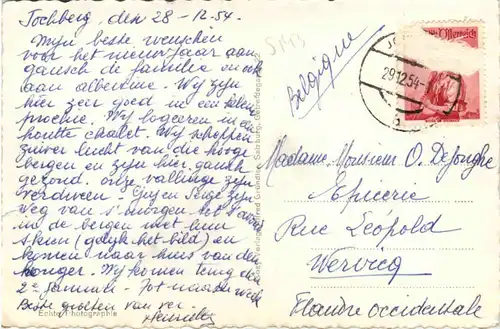 Jochberg, den 28-12.54.
Mijn beste wenschen
voor het nieuwjaar aan
gansch de familie en ook
aan albertine. Wij zijn
hier zeer goed in een klein
prochie. Wij logeeren in een
houtte chalet. Wij scheppen
zuiver lucht van die hooge
bergen en zijn hier gansch
gezond. onze vallinge zijn
verdwenen. en Serge zijn
weg van s'morgen tot s'avonds
in de bergen met hun
skien (gelijk het bild) en
komen naar huis van den
honger. Wij komen terug den
2e Januari. Tot naaste week
Beste groeten van ver.
Echte Photographie
5143
Belgique
29.12.54
Österreich
Madame, Monsieur O. DeJonghe
Epicerie
Rue Léopold
Wervicq
Flandre occidentale